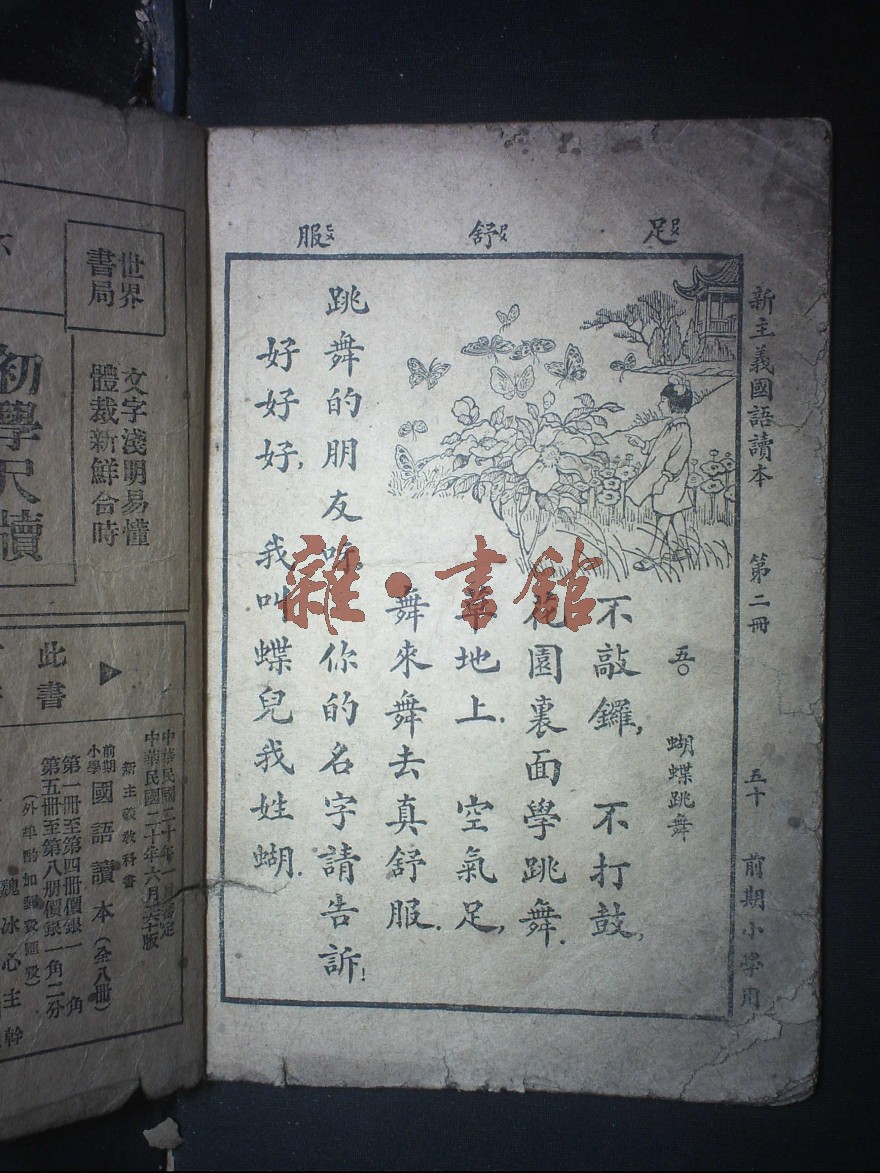 新主義國語讀本 第二冊 五十 前期小學用
足 舒 服
五〇 蝴蝶跳舞
不敲鑼,不打鼓,
花園裏面學跳舞.
草地上.空氣足,
舞來舞去真舒服.
跳舞的朋友呀。你的名字請告訴!
好好好,我叫蝶兒我姓蝴.
雜·書館
世界書局
文字淺明易懂
體裁新鮮合時
初學尺牘
此書
中華民國二十年六月
新主義教科書
前期小學 國語讀本(全八冊)
第一冊至第四冊價銀一角
第五冊至第八冊價銀一角二分
(外埠酌加郵費匯費)
魏冰心主幹